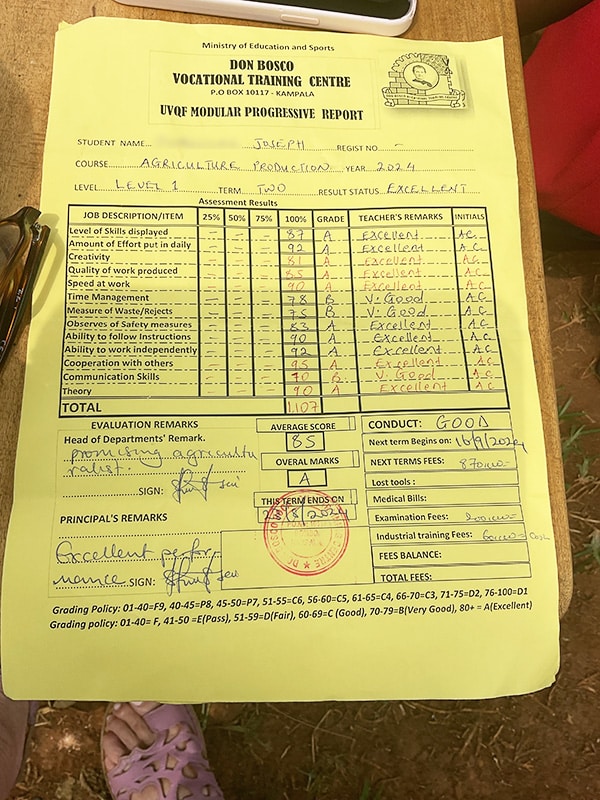 Ministry of Education and Sports
DON BOSCO
VOCATIONAL TRAINING CENTRE
P.O BOX 10117 - KAMPALA
UVQF MODULAR PROGRESSIVE REPORT
STUDENT NAME JOSEPH REGIST NO -
COURSE AGRICULTURE PRODUCTION YEAR 2024
LEVEL LEVEL 1 TERM TWO RESULT STATUS EXCELLENT
Assessment Results
JOB DESCRIPTION/ITEM 25% 50% 75% 100% GRADE TEACHER'S REMARKS INITIALS
Level of Skills displayed - - - 87 A Excellent A.C
Amount of Effort put in daily - - - 92 A Excellent A.C
Creativity - - - 81 A Excellent A.C
Quality of work produced - - - 85 A Excellent A.C
Speed at work - - - 90 A Excellent A.C
Time Management - - - 78 B V. Good A.C
Measure of Waste/Rejects - - - 75 B V. Good A.C
Observes of Safety measures - - - 83 A Excellent A.C
Ability to follow Instructions - - - 90 A Excellent A.C
Ability to work independently - - - 92 A Excellent A.C
Cooperation with others - - - 95 A Excellent A.C
Communication Skills - - - 70 B V. Good A.C
Theory - - - 90 A Excellent A.C
TOTAL 1,107
EVALUATION REMARKS
Head of Departments' Remark.
promising agricultu
ralist.
SIGN:
PRINCIPAL'S REMARKS
Excellent perfor
mance SIGN:
AVERAGE SCORE
85
OVERAL MARKS
A
THIS TERM ENDS ON
8/2024
CONDUCT: GOOD
Next term Begins on: 16/9/2024
NEXT TERMS FEES:
Lost tools :
Medical Bills:
Examination Fees:
Industrial training Fees:
FEES BALANCE:
TOTAL FEES:
Grading Policy: 01-40=F9, 40-45=P8, 45-50=P7, 51-55=C6, 56-60=C5, 61-65=C4, 66-70=C3, 71-75=D2, 76-100=D1
Grading policy: 01-40= F, 41-50 =E(Pass), 51-59=D(Fair), 60-69=C (Good), 70-79=B(Very Good), 80+ = A(Excellent)